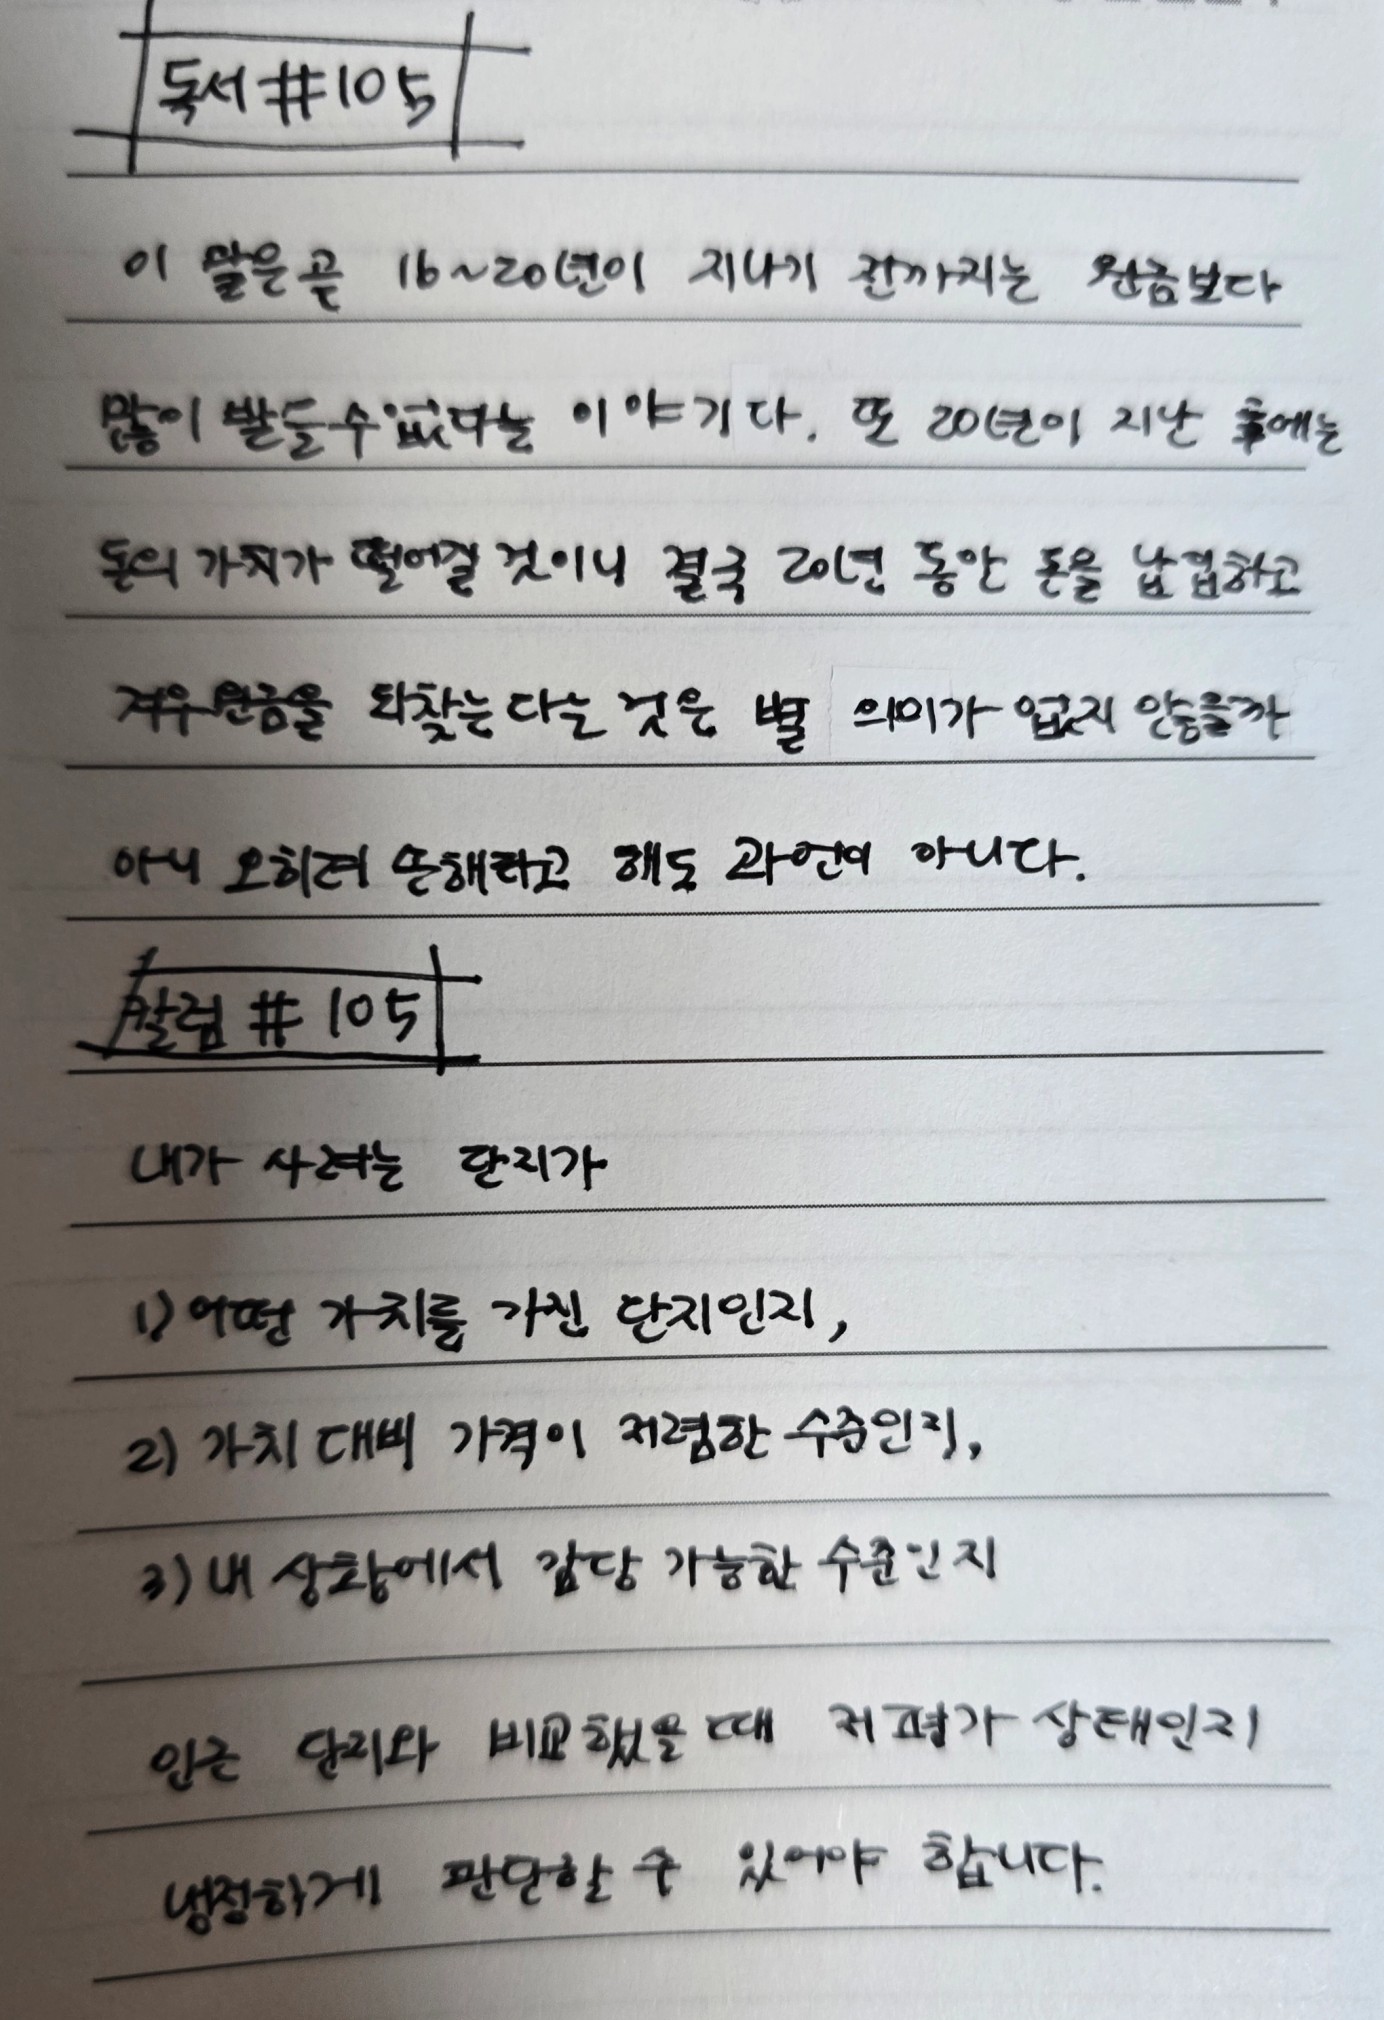 독서 #105
이 말은 곧 16~20년이 지나기 전까지는 원금보다
많이 받을 수 없다는 이야기다. 또 20년이 지난 후에는
돈의 가치가 떨어질 것이니 결국 20년 동안 돈을 납입하고
겨우 원금을 되찾는다는 것은 별 의미가 없지 않을까
아니 오히려 손해라고 해도 과언이 아니다.
칼럼 #105
내가 사려는 단지가
1) 어떤 가치를 가진 단지인지,
2) 가치 대비 가격이 저렴한 수준인지,
3) 내 상황에서 감당 가능한 수준인지
인근 단지와 비교했을 때 저평가 상태인지
냉정하게 판단할 수 있어야 합니다.